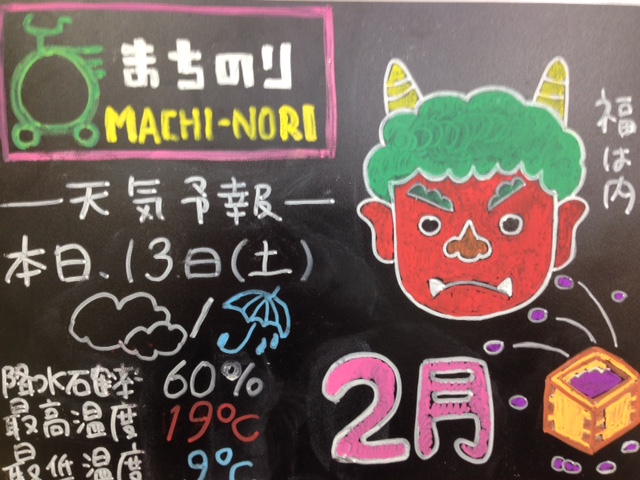 まちのり
MACHI-NORI
天気予報
本日、13日(土)
降水確率 60%
最高温度 19℃
最低温度 9℃
福は内
2月